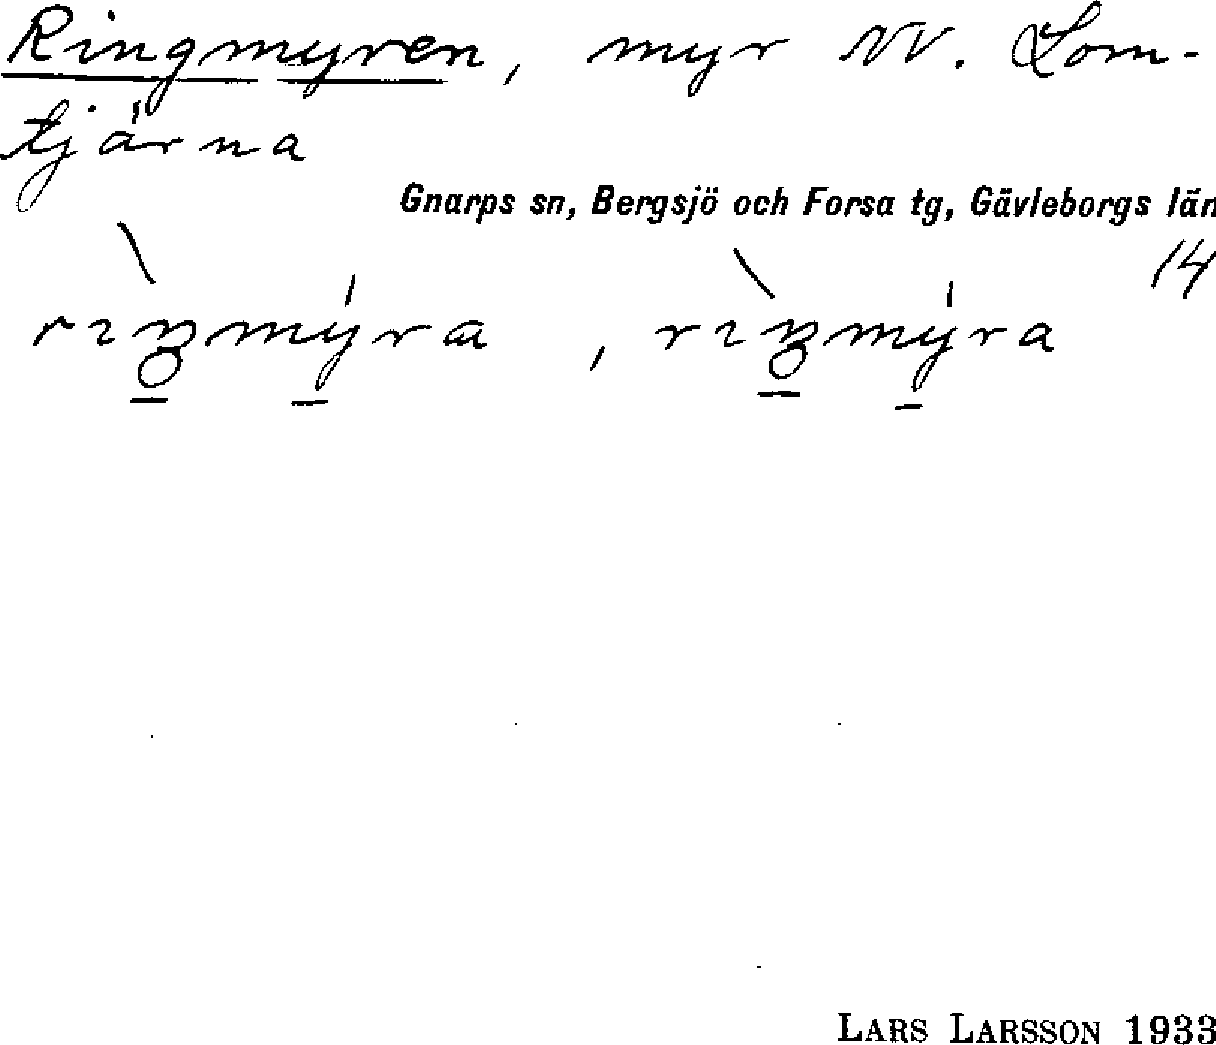 Ringmyren, myr NV. Lom-
tjärna
Gnarps sn, Bergsjö och Forsa tg, Gävleborgs län
14
LARS LARSSON 1933